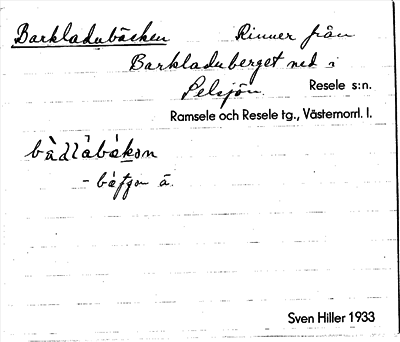 Barkladubäcken Rinner från
Barkladuberget ned i
Pelsjön. Resele s:n.
Ramsele och Resele tg., Västernorrl. l.
Sven Hiller 1933